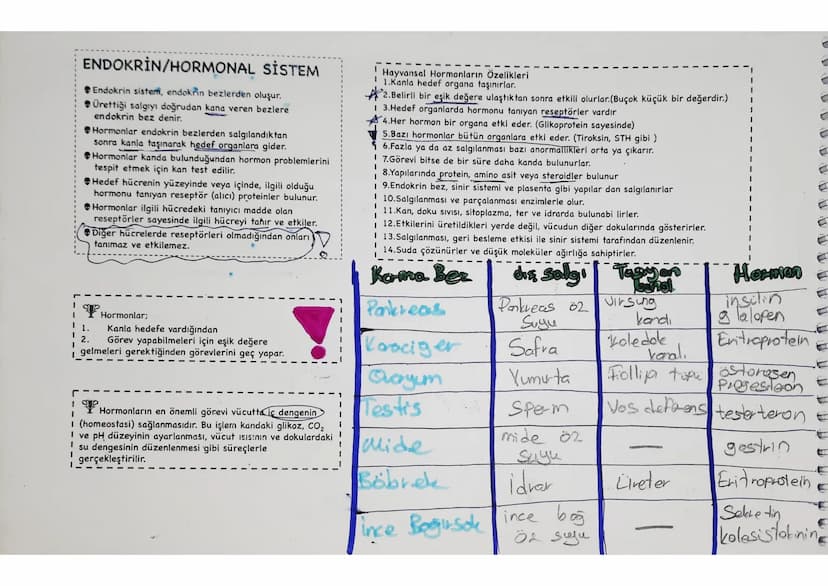 ENDOKRİN/HORMONAL SİSTEM
Endokrin sistem, endokrin bezlerden oluşur.
Ürettiği salgıyı doğrudan kana veren bezlere
endokrin bez denir.
Hormonlar endokrin bezlerden salgılandıktan
sonra kanla taşınarak hedef organlara gider.
Hormonlar kanda bulunduğundan hormon problemlerini
tespit etmek için kan test edilir.
Hedef hücrenin yüzeyinde veya içinde, ilgili olduğu
hormonu tanıyan reseptör (alıcı) proteinler bulunur.
Hormonlar ilgili hücredeki tanıyıcı madde olan
reseptörler sayesinde ilgili hücreyi tanır ve etkiler.
Diğer hücrelerde reseptörleri olmadığından onları
tanımaz ve etkilemez.
Hormonlar:
1. Kanla hedefe vardığından
2. Görev yapabilmeleri için eşik değere
gelmeleri gerektiğinden görevlerini geç yapar.
Hormonların en önemli görevi vücutta iç dengenin
(homeostasi) sağlanmasıdır. Bu işlem kandaki glikoz, CO₂
ve pH düzeyinin ayarlanması, vücut ısısının ve dokulardaki
su dengesinin düzenlenmesi gibi süreçlerle
gerçekleştirilir.
Hayvansal Hormonların Özelikleri
1.Kanla hedef organa taşınırlar.
2.Belirli bir eşik değere ulaştıktan sonra etkili olurlar.(Buçok küçük bir değerdir.)
3.Hedef organlarda hormonu tanıyan reseptörler vardır
4.Her hormon bir organa etki eder. (Glikoprotein sayesinde)
5.Bazı hormonlar bütün organlara etki eder. (Tiroksin, STH gibi )
6.Fazla ya da az salgılanması bazı anormallikleri orta ya çıkarır.
7.Görevi bitse de bir süre daha kanda bulunurlar.
8.Yapılarında protein, amino asit veya steroidler bulunur
9.Endokrin bez, sinir sistemi ve plasenta gibi yapılar dan salgılanırlar
10.Salgılanması ve parçalanması enzimlerle olur.
11.Kan, doku sıvısı, sitoplazma, ter ve idrarda bulunabi lirler.
12.Etkilerini üretildikleri yerde değil, vücudun diğer dokularında gösterirler.
13.Salgılanması, geri besleme etkisi ile sinir sistemi tarafından düzenlenir.
14.Suda çözünürler ve düşük moleküler ağırlığa sahiptirler.
Karma Bez dış salgı Taşıyan kanal Hormon
Pankreas Pankreas öz suyu Virsung kanalı insilin glalagen
Karaciğer Safra Koledok kanalı Eritroprotein
Ovaryum Yumurta Follip tüpü östorojen Progesteron
Testis Sperm Vas deferens testerteron
Mide mide öz suyu — gastrin
Böbrek İdrar Üreter Eritroprotein
İnce Bağırsak ince bağ öz suyu — Sekretin kolesistokinin